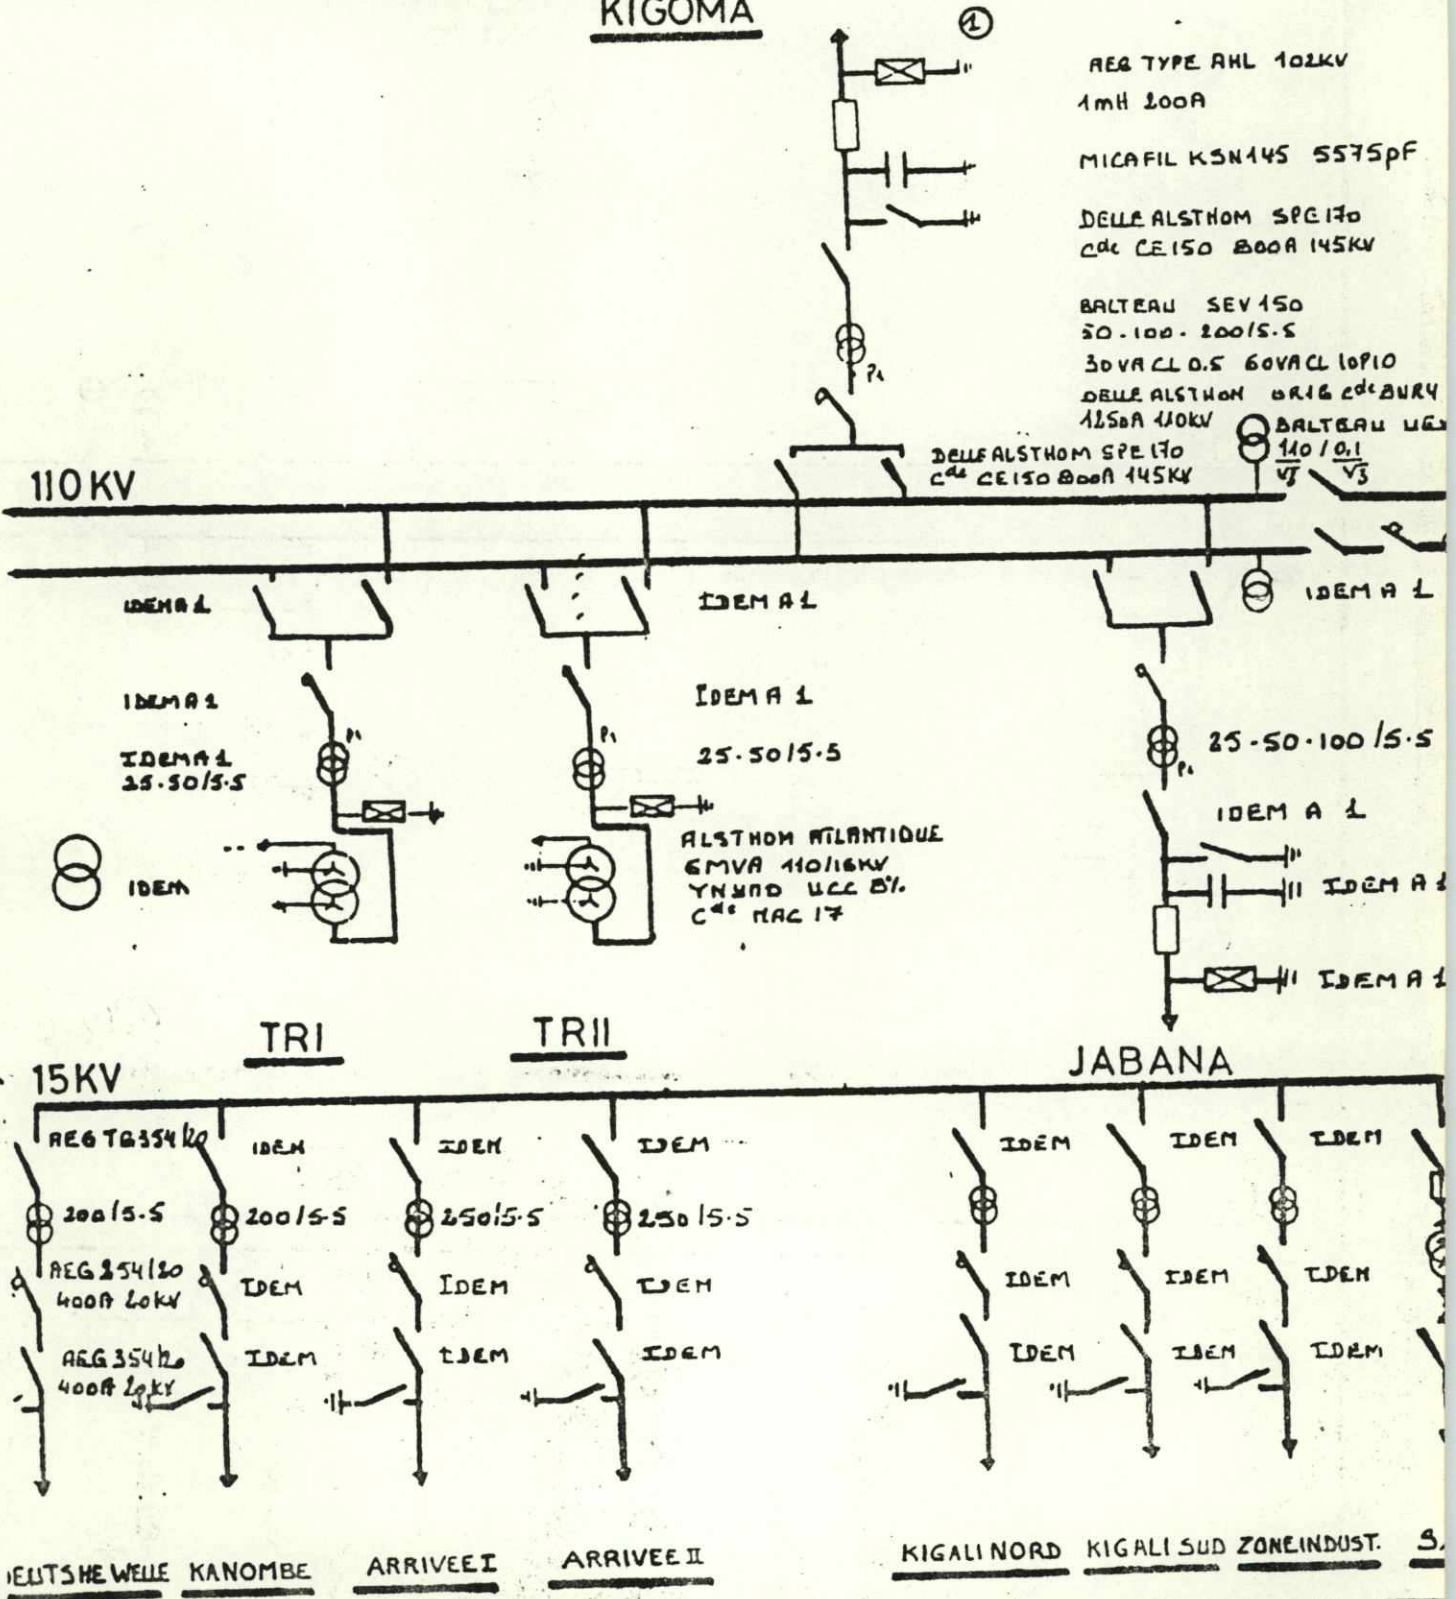 KIGOMA
1
AEG TYPE AHL 102KV
1mH 200A
MICAFIL KSN145 5575pF
DELLE ALSTHOM SPE 170
Cde CE 150 800A 145KV
BALTEAU SEV 150
50.100.200/5.5
30 VA CL 0.5 60VA CL 10P10
P1
DELLE ALSTHOM OR1G Cde BURY
1250A 110KV
BALTEAU
110/0,1
√3 √3
DELLE ALSTHOM SPE 170
Cde CE 150 800A 145KV
110 KV
IDEM A 1
IDEM A 1
IDEM A 1
IDEM A 1
IDEM A 1
P1
P1
IDEM A 1
25.50/5.5
25.50/5.5
25.50.100/5.5
P1
IDEM A 1
IDEM
ALSTHOM ATLANTIQUE
6MVA 110/16KV
UCC 8%
Cde MAC 17
IDEM A 1
IDEM A 1
TRI
TRII
JABANA
15KV
AEG TG354/20
IDEM
IDEM
IDEM
IDEM
IDEM
IDEM
200/5.5
200/5.5
250/5.5
250/5.5
AEG 254/20
400A 20KV
IDEM
IDEM
IDEM
IDEM
IDEM
IDEM
AEG 354/20
400A 20KV
IDEM
IDEM
IDEM
IDEM
IDEM
IDEM
EUTSHE WELLE
KANOMBE
ARRIVEE I
ARRIVEE II
KIGALI NORD
KIGALI SUD
ZONE INDUST.